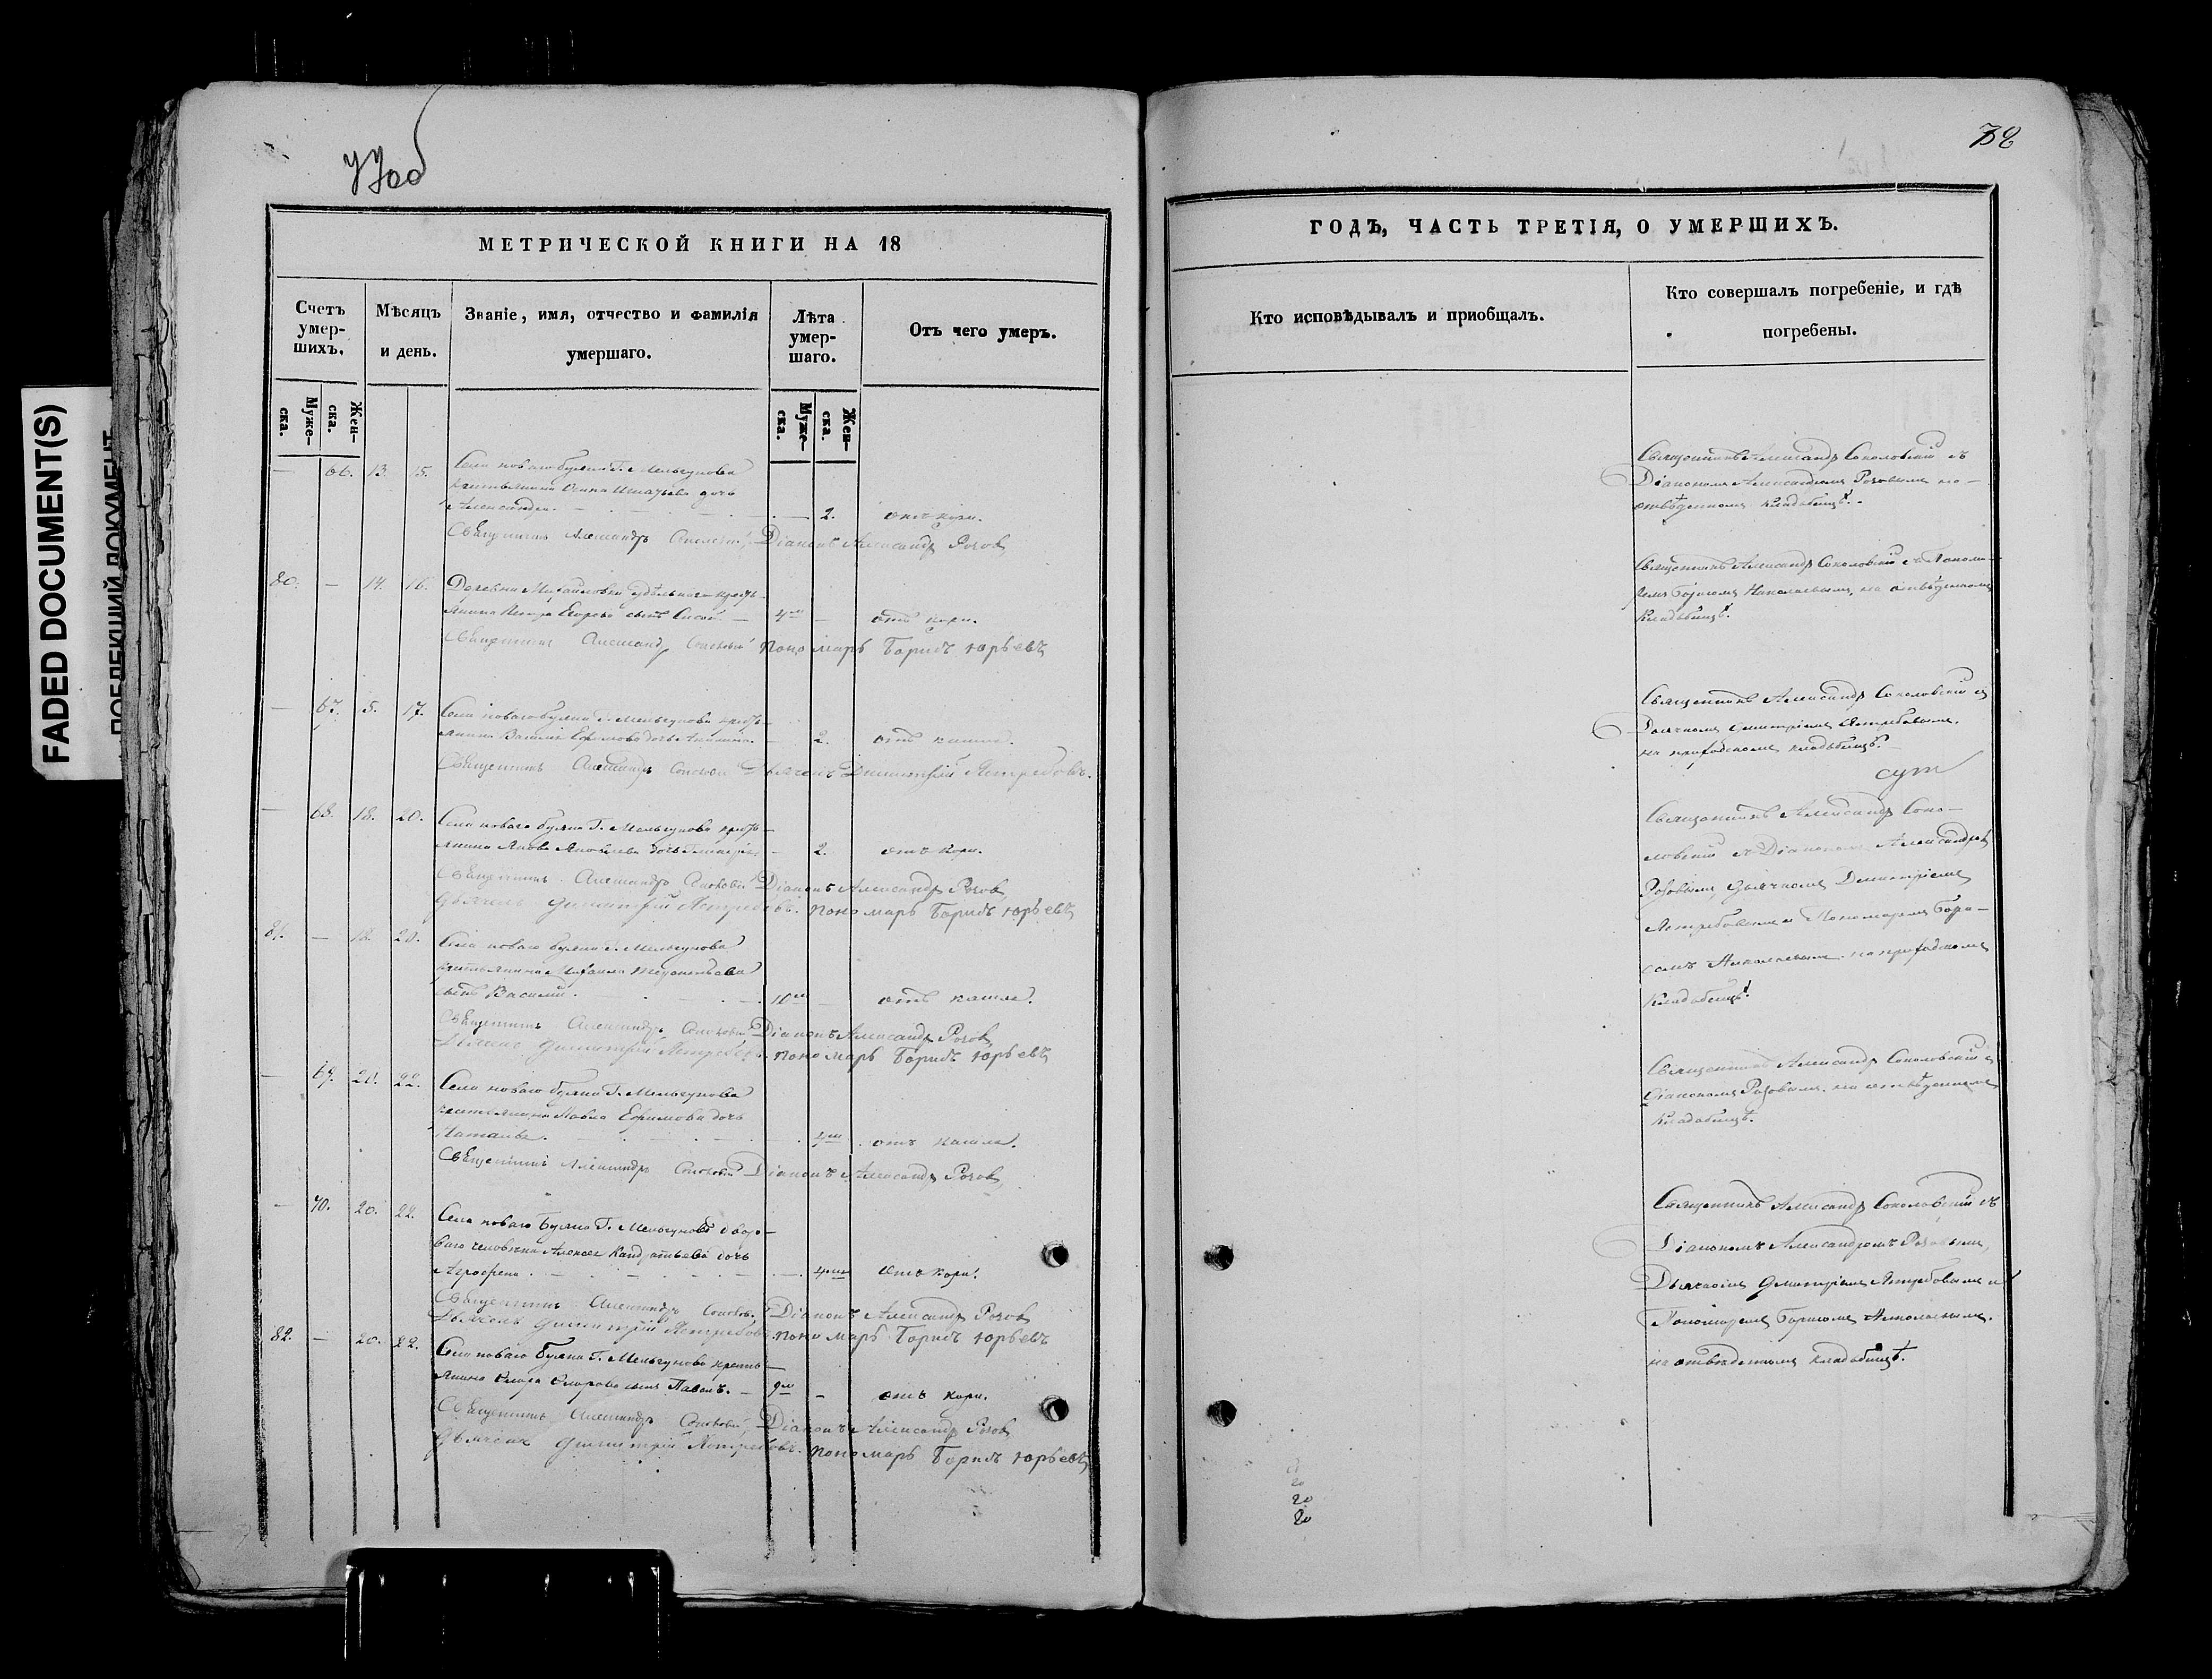 77об
МЕТРИЧЕСКОЙ КНИГИ НА 18
Счетъ умер-шихъ.
Мѣсяцъ и день.
Званіе, имя, отчество и фамилія умершаго.
Лѣта умер-шаго.
Отъ чего умеръ.
Муже-ска.
Жен-ска.
Муже-ска.
Жен-ска.
— 66. 13. 15. Села новаго Буяна Г. Мельгунова
крестьянина Игнатьева дочь
Александра. — 2. отъ кори.
Священникъ Александръ Соколовскій Діаконъ Александръ Розов
80. — 14. 16. Деревни Михайловки удѣльнаго кресть-
янина Петра Егорова сынъ Сисой. — 4 — отъ кори.
Священникъ Александръ Соколовскій Пономарь Борисъ Юрьевъ
— 67. 5. 17. Села новаго Буяна Г. Мельгунова кресть-
янина Василія Ефимова дочь — 2. отъ кашля.
Священникъ Александръ Соколовскій Дьячекъ Димитрій Ястребовъ.
— 68. 18. 20. Села новаго Буяна Г. Мельгунова кресть-
янина Якова Яковлева дочь — 2. отъ кори.
Священникъ Александръ Соколовскій Діаконъ Александръ Розов
Дьячекъ Димитрій Ястребовъ. Пономарь Борисъ Юрьевъ
81. — 18. 20. Села новаго Буяна Г. Мельгунова
крестьянина Михаила сынъ Василій. 10 — отъ кашля.
Священникъ Александръ Соколовскій Діаконъ Александръ Розов
Дьячекъ Димитрій Ястребовъ. Пономарь Борисъ Юрьевъ
— 69. 20. 22. Села новаго Буяна Г. Мельгунова
крестьянина Павла Ефимова дочь
Наталья. 4 отъ кашля.
Священникъ Александръ Соколовскій Діаконъ Александръ Розов
— 70. 20. 22. Села новаго Буяна Г. Мельгунова дворо-
ваго человѣка Алексея Кандратьева дочь
Агрофена. — 4 отъ кори.
Священникъ Александръ Соколовскій Діаконъ Александръ Розов
Дьячекъ Димитрій Ястребовъ. Пономарь Борисъ Юрьевъ
82. — 20. 22. Села новаго Буяна Г. Мельгунова кресть-
янина сынъ Павелъ. — 9 — отъ кори.
Священникъ Александръ Соколовскій Діаконъ Александръ Розов
Дьячекъ Димитрій Ястребовъ. Пономарь Борисъ Юрьевъ
FADED DOCUMENT(S)
ДОКУМЕНТ
ГОДЪ, ЧАСТЬ ТРЕТІЯ, О УМЕРШИХЪ.
Кто исповѣдывалъ и пріобщалъ.
Кто совершалъ погребеніе, и гдѣ погребены.
Священникъ Александръ Соколовскій съ
Діакономъ Александромъ Розовымъ на
отвѣденномъ кладбищѣ.
Священникъ Александръ Соколовскій съ Понома-
ремъ Борисомъ Николаевымъ, на отвѣденномъ
кладбищѣ.
Священникъ Александръ Соколовскій съ
Дьячкомъ Димитріемъ Ястребовымъ,
на приходскомъ кладбищѣ.
Священникъ Александръ Соко-
ловскій съ Діакономъ Александромъ
Розовымъ, Дьячкомъ Димитріемъ
Ястребовымъ и Пономаремъ Бори-
сомъ Николаевымъ на приходскомъ
кладбищѣ.
Священникъ Александръ Соколовскій съ
Діакономъ Розовымъ, на отвѣденномъ
кладбищѣ.
Священникъ Александръ Соколовскій съ
Діакономъ Александромъ Розовымъ,
Дьячкомъ Димитріемъ Ястребовымъ и
Пономаремъ Борисомъ Николаевымъ.
на отвѣденномъ кладбищѣ.
20
20
20